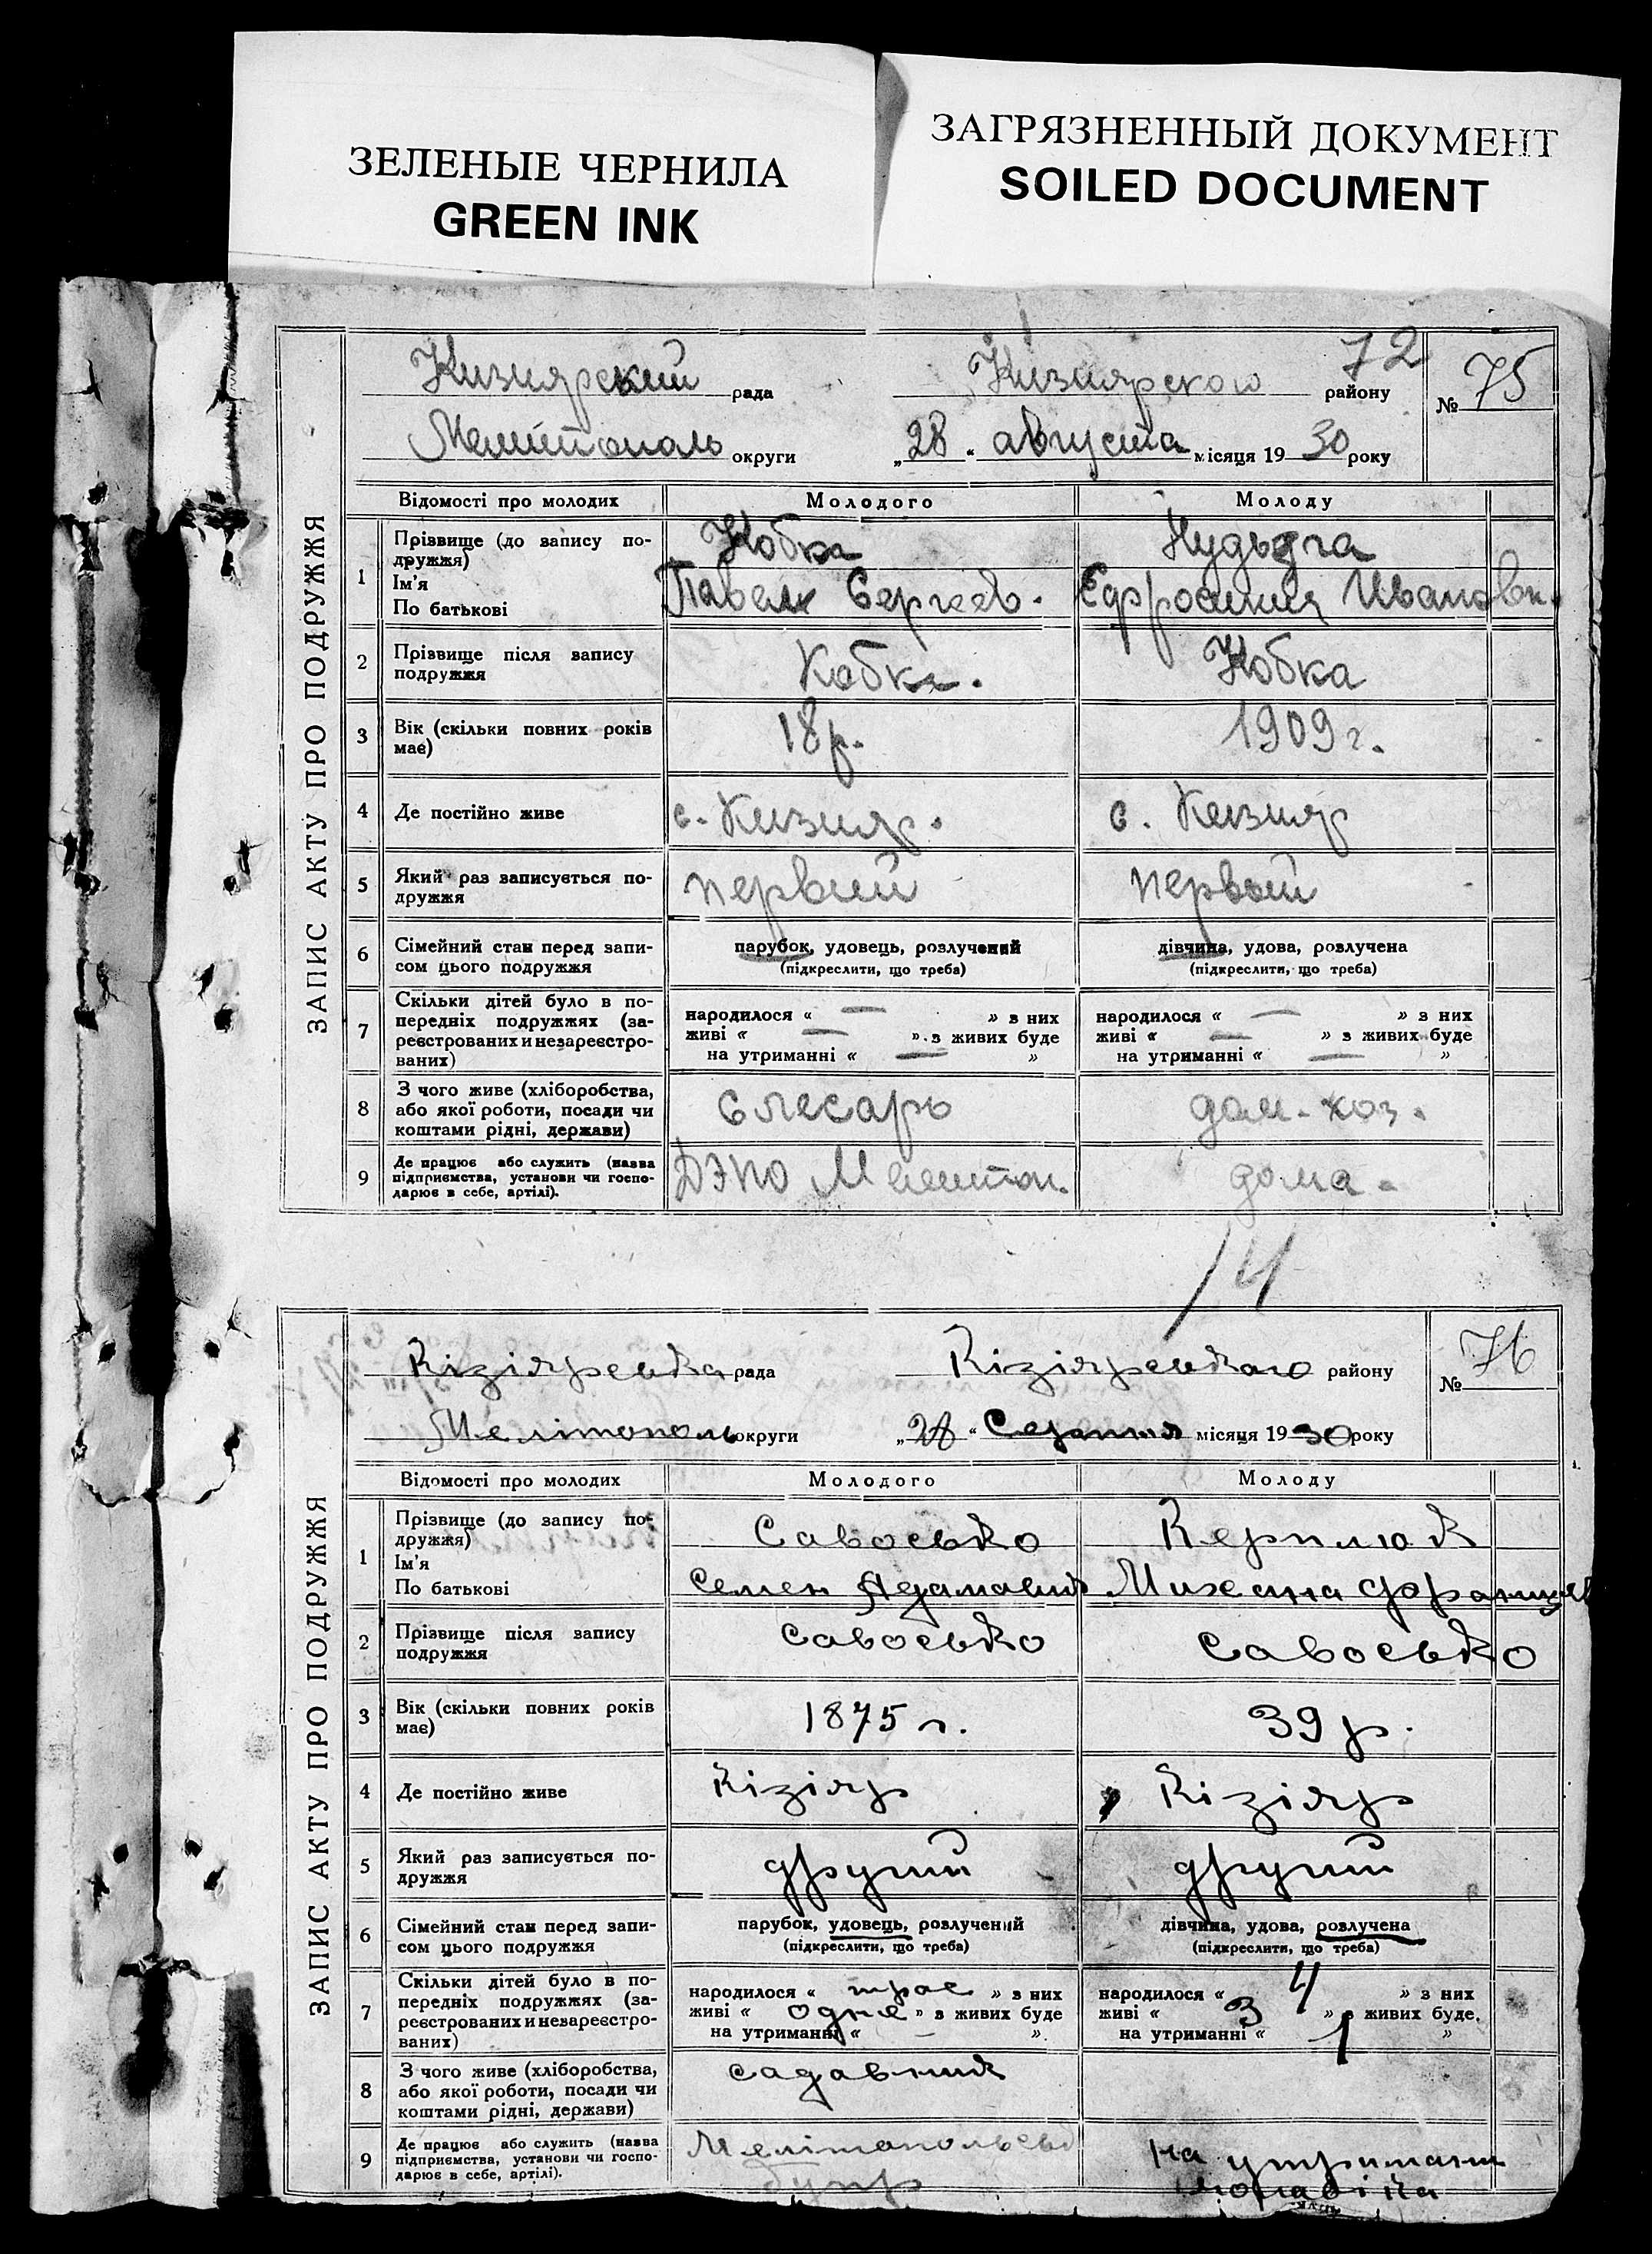 ЗЕЛЕНЫЕ ЧЕРНИЛА
GREEN INK
ЗАГРЯЗНЕННЫЙ ДОКУМЕНТ
SOILED DOCUMENT
72
Кизиярский рада Кизиярского району № 75
Мелитополь округи „28“ августа місяця 1930 року
ЗАПИС АКТУ ПРО ПОДРУЖЖЯ
Відомості про молодих Молодого Молоду
1 Прізвище (до запису по-дружжя) Кобка
Ім'я
По батькові Павел Сергеев. Ефросиния Ивановн.
2 Прізвище після запису подружжя Кобка. Кобка
3 Вік (скільки повних років має) 18р. 1909 г.
4 Де постійно живе с. Кизияр. с. Кизияр
5 Який раз записується по-дружжя первий первый
6 Сімейний стан перед запи-сом цього подружжя парубок, удовець, розлучений дівчина, удова, розлучена
(підкреслити, що треба) (підкреслити, що треба)
7 Скільки дітей було в по-передніх подружжях (за-реєстрованих и незареєстро-ваних)
народилося « — » з них народилося « — » з них
живі « — » з живих буде живі « — » з живих буде
на утриманні « — » на утриманні « — »
8 З чого живе (хліборобства, або якої роботи, посади чи коштами рідні, держави) слесарь дом. хоз.
9 Де працює або служить (назва підприємства, установи чи госпо-дарює в себе, артілі). дома.
14
Кізіярська рада Кізіярського району № 76
Мелітополь округи „28“ Серпня місяця 1930 року
ЗАПИС АКТУ ПРО ПОДРУЖЖЯ
Відомості про молодих Молодого Молоду
1 Прізвище (до запису по-дружжя) Савосько
Ім'я
По батькові Семен Адамович
2 Прізвище після запису подружжя Савосько Савосько
3 Вік (скільки повних років має) 1875 г. 39 р.
4 Де постійно живе Кізіяр Кізіяр
5 Який раз записується по-дружжя другий другий
6 Сімейний стан перед запи-сом цього подружжя парубок, удовець, розлучений дівчина, удова, розлучена
(підкреслити, що треба) (підкреслити, що треба)
7 Скільки дітей було в по-передніх подружжях (за-реєстрованих и незареєстро-ваних)
народилося « трое » з них народилося « 4 » з них
живі « одне » з живих буде живі « 3 » з живих буде.
на утриманні « — » на утриманні « 1 »
8 З чого живе (хліборобства, або якої роботи, посади чи коштами рідні, держави) садавник
9 Де працює або служить (назва підприємства, установи чи госпо-дарює в себе, артілі). на утриманні
чоловіка